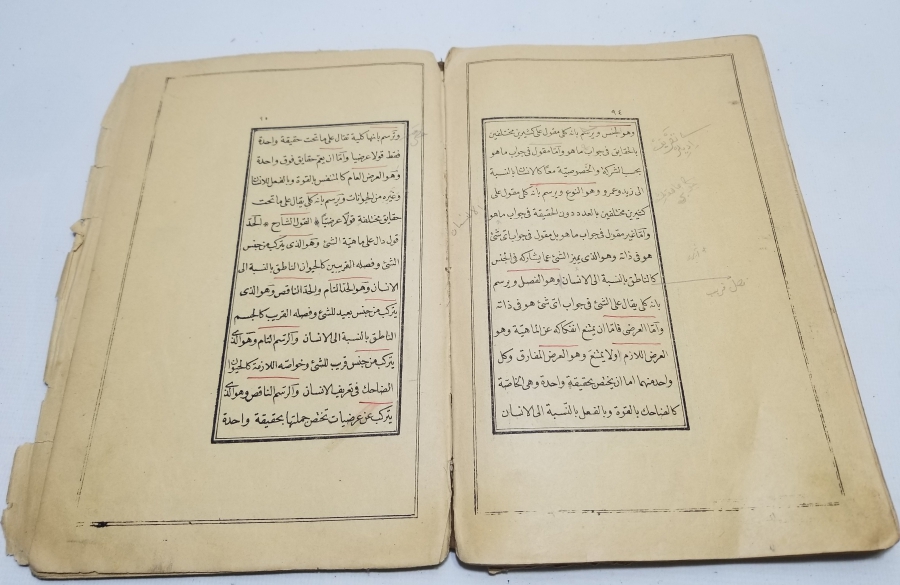 ٩٤
وهو الجنس ويرسم بانه كلى مقول على كثيرين مختلفين
بالحقايق فى جواب ماهو وامّا مقول فى جواب ماهو
بحسب الشركة والخصوصيّة معًا كالانسان بالنسبة
الى زيد وعمرو وهو النوع ويرسم بانه كلى مقول على
كثيرين مختلفين بالعدد دون الحقيقة فى جواب ماهو
وامّا غير مقول فى جواب ماهو بل مقول فى جواب اىّ شئ
هو فى ذاته وهو الذى يميز الشئ عما يشاركه فى الجنس
كالناطق بالنسبة الى الانسان وهو الفصل ويرسم
بانه كلى يقال على الشئ فى جواب اىّ شئ هو فى ذاته
وامّا العرضى فامّا ان يمتنع انفكاكه عن الماهيّة وهو
العرض اللازم اولا يمتنع وهو العرض المفارق وكل
واحد منهما اما ان يختص بحقيقةٍ واحدة وهى الخاصّة
كالضاحك بالقوة وبالفعل بالنّسبة الى الانسان
فصل قريب
وترسم بانها كلية تقال على ما تحت حقيقة واحدة
فقط قولا عرضيا وامّا ان يعم حقايق فوق واحدة
وهو العرض العام كالمتنفس بالقوة وبالفعل للانسان
وغيره من الحيوانات ويرسم بانه كلى يقال على ما تحت
حقايق مختلفة قولا عرضيّا * القول الشارح * الحدّ
قول دال على ماهيّة الشئ وهو الذى يتركب من جنس
الشئ وفصله القريبين كالحيوان الناطق بالنسبة الى
الانسان وهو الحدّ التام والحدّ الناقص وهو الذى
يتركب من جنس بعيد للشئ وفصله القريب كالجسم
الناطق بالنسبة الى الانسان والرسم التام وهو الذى
يتركب من جنس قريب للشئ وخواصّه اللازمة كالحيوان
الضاحك فى تعريف الانسان والرسم الناقص وهو الذى
يتركب عن عرضيات تختص جملتها بحقيقة واحدة